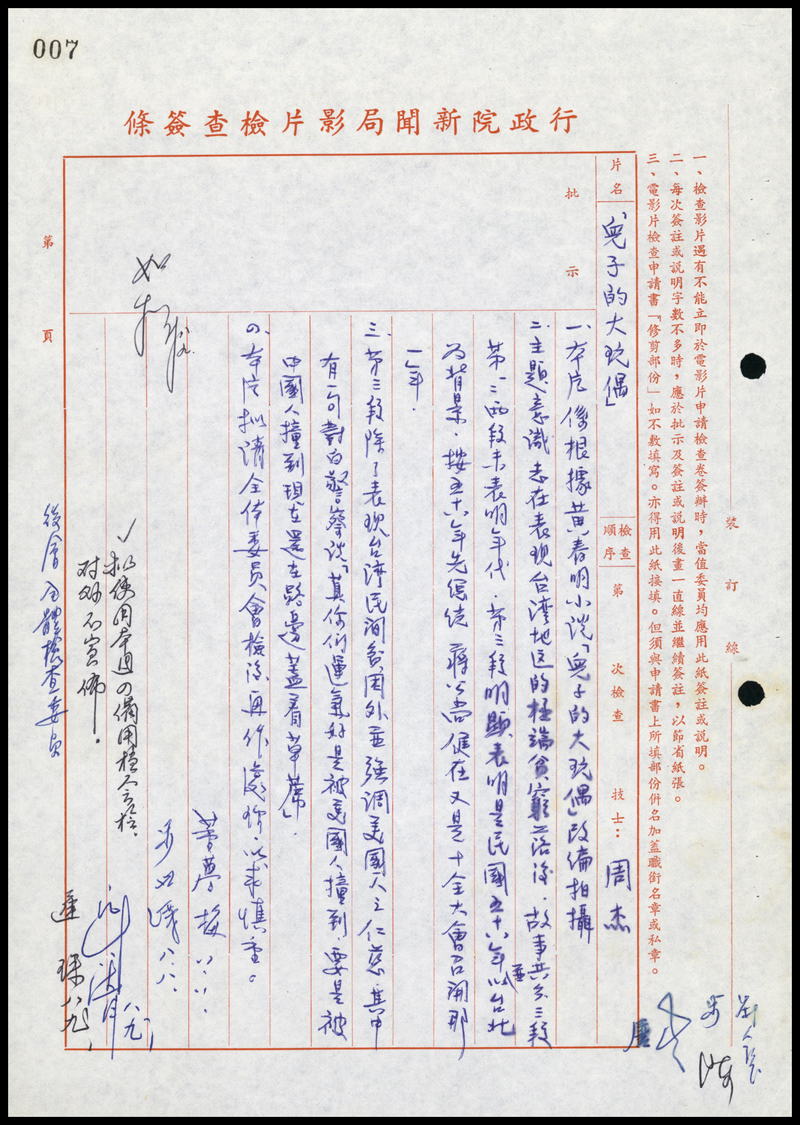 007
行政院新聞局影片檢查簽條
一、檢查影片遇有不能立即於電影片申請檢查卷簽辦時，當值委員均應用此紙簽註或説明。
二、每次簽註或説明字數不多時，應於批示及簽註或説明後畫一直線並繼續簽註，以節省紙張。
三、電影片檢查申請書「修剪部份」如不敷填寫。亦得用此紙接填。但須與申請書上所填部份併名加蓋職銜名章或私章。
裝訂線
片名
「兒子的大玩偶」
檢查順序
第　次檢查
技士：周杰
批示
一、本片係根據黄春明小説「兒子的大玩偶」改編拍攝
二、主題意識志在表現台湾地区的極端貧窮落後，故事共分三段
第一、二兩段未表明年代，第三段明顯表明是民國五十六年並以台北
為背景，按五十六年先總統 蔣公尚健在又是十全大會召開那
一年。
三、第三段除了表現台湾民間貧困外並強調美國人之仁慈，其中
有一句對白警察说「真你们運氣好是被美國人撞到，要是被
中國人撞到現在還在路邊蓋着草蓆」。
四、本片拟請全体委員會檢後再作處理，以求慎重。
如拟
八.九.
八.八.
八.八.
拟使用本週四備用檢會檢，
对外不宣佈。
八.九.
後會全體檢查委員
八.九.
第　頁